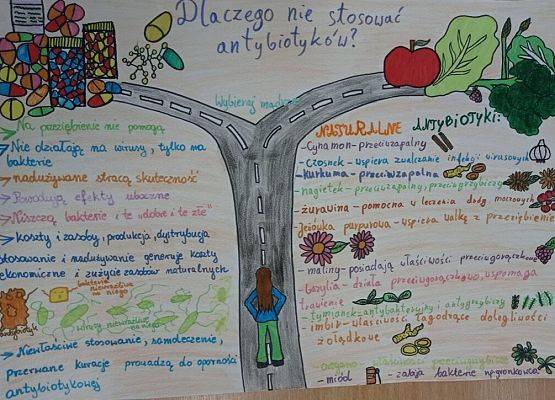 Dlaczego nie stosować
antybiotyków?
Wybieraj mądrze
→ Na przeziębienie nie pomogą
→ Nie działają na wirusy, tylko na
bakterie
→ nadużywane stracą skuteczność
→ Powodują efekty uboczne
→ Niszczą bakterie i te „dobre i te złe”
→ koszty i zasoby, produkcja, dystrybucja
stosowanie i nadużywanie generuje koszty
ekonomiczne i zużycie zasobów naturalnych
bakteria
niewrażliwa
na niego
antybiotyk
wirusy niewrażliwe
na niego
→ Niewłaściwe stosowanie, samoleczenie,
przerwane kuracje prowadzą do oporności
antybiotykowej
NATURALNE ANTYBIOTYKI:
- Cynamon - przeciwzapalny
- czosnek - wspiera zwalczanie infekcji wirusowych
- kurkuma - przeciwzapalna
- nagietek - przeciwzapalny, przeciwgrzybiczy
- żurawina - pomocna w leczeniu dróg moczowych
- jeżówka purpurowa - wspiera walkę z przeziębieniem
- maliny - posiadają właściwości przeciwgorączkowe
- bazylia - działa przeciwgorączkowo, wspomaga
trawienie
- tymianek - antybakteryjny i antygrzybiczy
- imbir - właściwości łagodzące dolegliwości
żołądkowe
- oregano - właściwości przeciwgrzybicze
- miód - zabija bakterie np. gronkowca